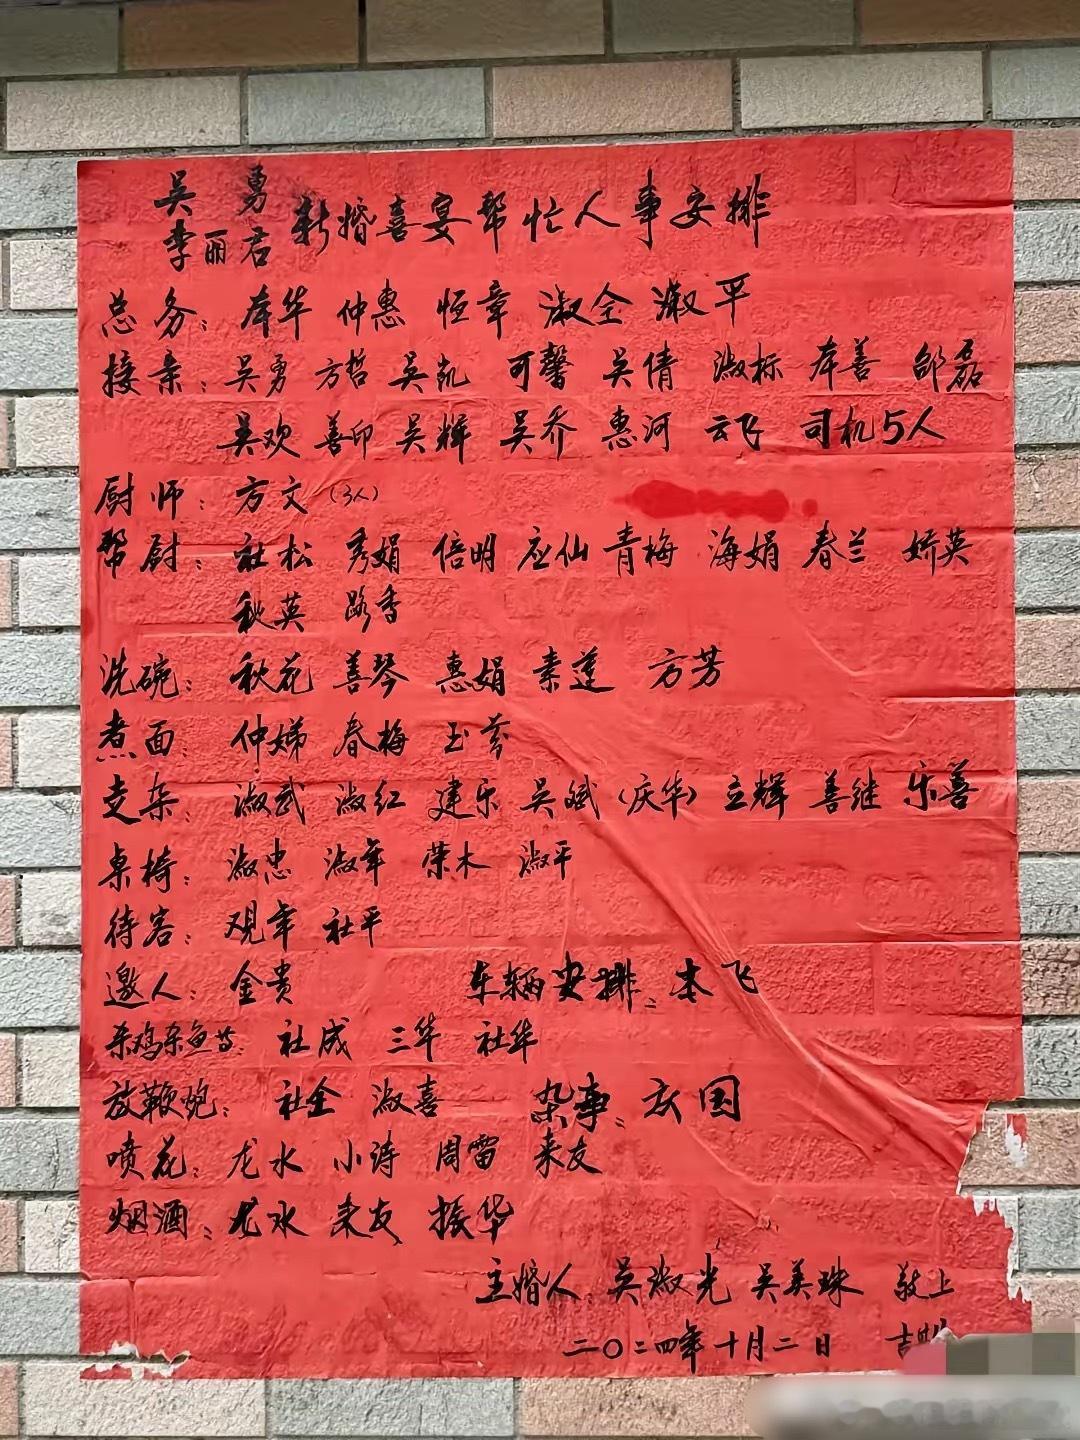 吴勇
李丽君 新婚喜宴帮忙人事安排
总务：本华 仲惠 恒章 淑全 淑平
接亲：吴勇 方哲 吴凯 可馨 吴倩 淑标 本善 邰磊
吴欢 善印 吴辉 吴乔 惠河 云飞 司机5人
厨师：方文（3人）
帮厨：社松 秀娟 倍明 应仙 青梅 海娟 春兰 娇英
秋英 路香
洗碗：秋花 善琴 惠娟 素莲 方芳
煮面：仲娣 春梅 玉芬
支杂：淑武 淑红 建乐 吴斌（庆华）立辉 善继 乐善
桌椅：淑忠 淑年 荣木 淑平
待客：观年 社平
邀人：金贵 车辆安排：本飞
杀鸡杀鱼等：社成 三华 社华
放鞭炮：社全 淑喜 杂事：庆国
喷花：龙水 小诗 周雷 来友
烟酒：龙水 来友 振华
主婚人：吴淑光 吴美珠 敬上
二〇二四年十月二日 吉